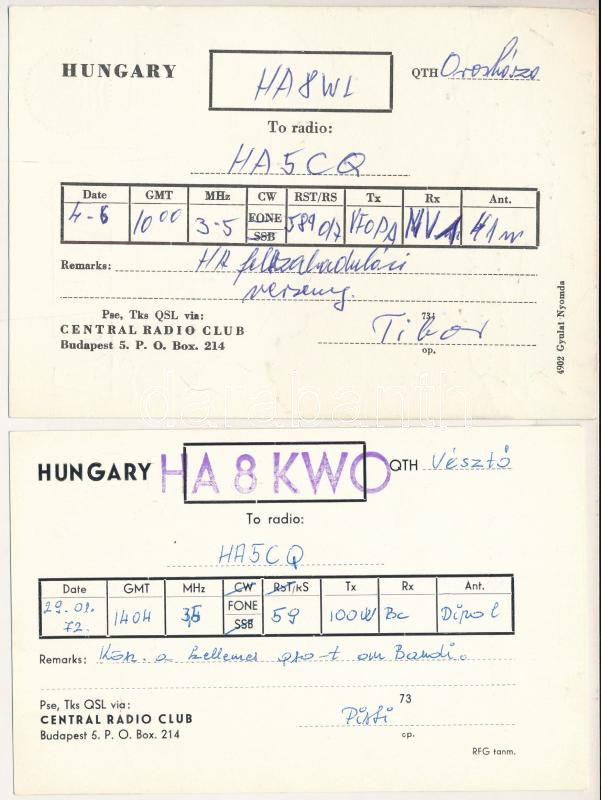 HUNGARY HA8WL QTH Orosháza
To radio:
HA5CQ
Date GMT MHz CW RST/RS Tx Rx Ant.
FONE
4-6 10 00 3-5 SSB 589 017 VFO PA 41 m
Remarks: HA felszabadulási
verseny.
Pse, Tks QSL via: 73!
CENTRAL RADIO CLUB Tibor
Budapest 5. P. O. Box. 214 op.
4902 Gyulai Nyomda
darabanth
HUNGARY HA8KWO QTH Vésztő
To radio:
HA5CQ
Date GMT MHz CW RST/RS Tx Rx Ant.
29.01. 1404 FONE 59 100W Bc Dipol
72. SSB
Remarks: Kösz. a kellemes qso-t om Bandi.
Pse, Tks QSL via: 73
CENTRAL RADIO CLUB Pisti
Budapest 5. P. O. Box. 214 op.
RFG tanm.